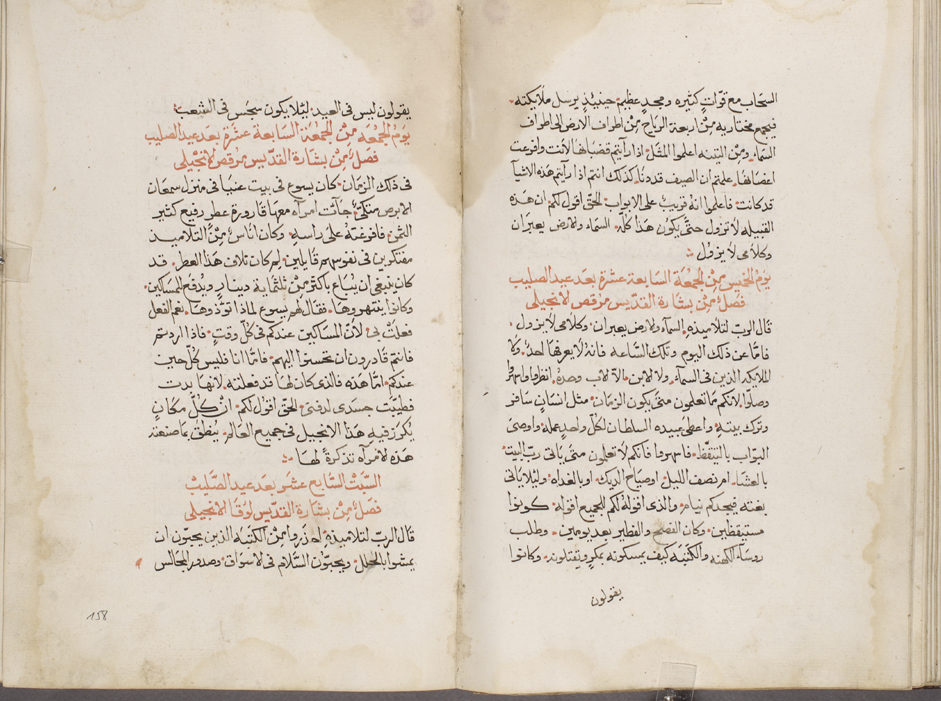 السحاب مع قوات كثيره ومجد عظيم٠ حينيذ يرسل ملايكته٠
فيجمع مختاريه من اربعة الرياح من اطراف الارض الى اطراف
السماء٠ ومن التينه اعلموا المثل٠ اذا رايتم قضبانها لانت وافرعت
اغصانها٠ علمتم ان الصيف قد دنا٠ كذلك انتم اذا رايتم هذه الاشيآ
قد كانت٠ فاعلموا انه قريب على الابواب٠ الحق اقول لكم ان هذه
القبيله لا تزول حتى يكون هذا كله٠ السماء والارض يعبران
وكلامى لا يزول
يوم الخميس من الجمعة السابعة عشرة بعد عيد الصليب
فصل من بشارة القديس مرقص الانجيلى
قال الرب لتلاميذه٠ السمآء والارض يعبران٠ وكلامى لا يزول٠
فاما عن ذلك اليوم وتلك الساعه فانه لا يعرفها احد٠ ولا
الملايكه الذين فى السمآء٠ ولا الابن٠ الا الاب وحده٠ انظروا واسهروا
وصلوا٠ لانكم ما تعلمون متى يكون الزمان٠ مثل انسان سافر
وترك بيته٠ واعطى عبيده السلطان لكل واحد عمله٠ واوصى
البواب بالتيقظ٠ فاسهروا فانكم لا تعلمون متى ياتى رب البيت
بالعشا٠ ام نصف الليل٠ او صياح الديك٠ او بالغداه٠ وليلا ياتى
بغته فيجدكم نيام٠ والذى اقوله لكم للجميع اقوله٠ كونوا
مستيقظين٠ وكان الفصح والفطير بعد يومين٠ وطلب
روسآء الكهنه والكتبه كيف يمسكونه بمكر ويقتلونه٠ وكانوا
يقولون
يقولون ليس فى العيد٠ ليلا يكون سجس فى الشعب
يوم الجمعه من الجمعة السابعة عشرة بعد عيد الصليب
فصل من بشارة القديس مرقص الانجيلى
فى ذلك الزمان٠ كان يسوع فى بيت عنيا فى منزل سمعان
الابرص متكى٠ جآت امراه معها قارورة عطر رفيع كثير
الثمن٠ فافرغته على راسه٠ وكان اناس من التلاميذ
مفتكرين فى نفوسهم قايلين٠ لم كان تلاف هذا العطر٠ قد
كان ينبغى ان يباع باكثر من ثلثمايه دينار ويدفع للمساكين٠
وكانوا ينتهروها٠ فقال لهم يسوع لماذا توذوها٠ نعم الفعل
فعلت بى٠ لان المساكين عندكم فى كل وقت٠ فاذا اردتم
فانتم قادرون ان تحسنوا اليهم٠ فاما انا فليس كل حين
عندكم٠ اما هذه فالذى كان لها قد فعلته٠ لانها بدت
فطيبت جسدى لدفنى٠ الحق اقول لكم٠ ان كل مكان
يكرز فيه هذا الانجيل فى جميع العالم٠ ينطق بما صنعت
هذه الامراه تذكرة لها
السبت السابع عشر بعد عيد الصليب
فصل من بشارة القديس لوقا الانجيلى
قال الرب لتلاميذه٠ احذروا من الكتبه الذين يحبون ان
يمشوا بالحلل٠ ويحبون السلام فى الاسواق٠ وصدور المجالس
158